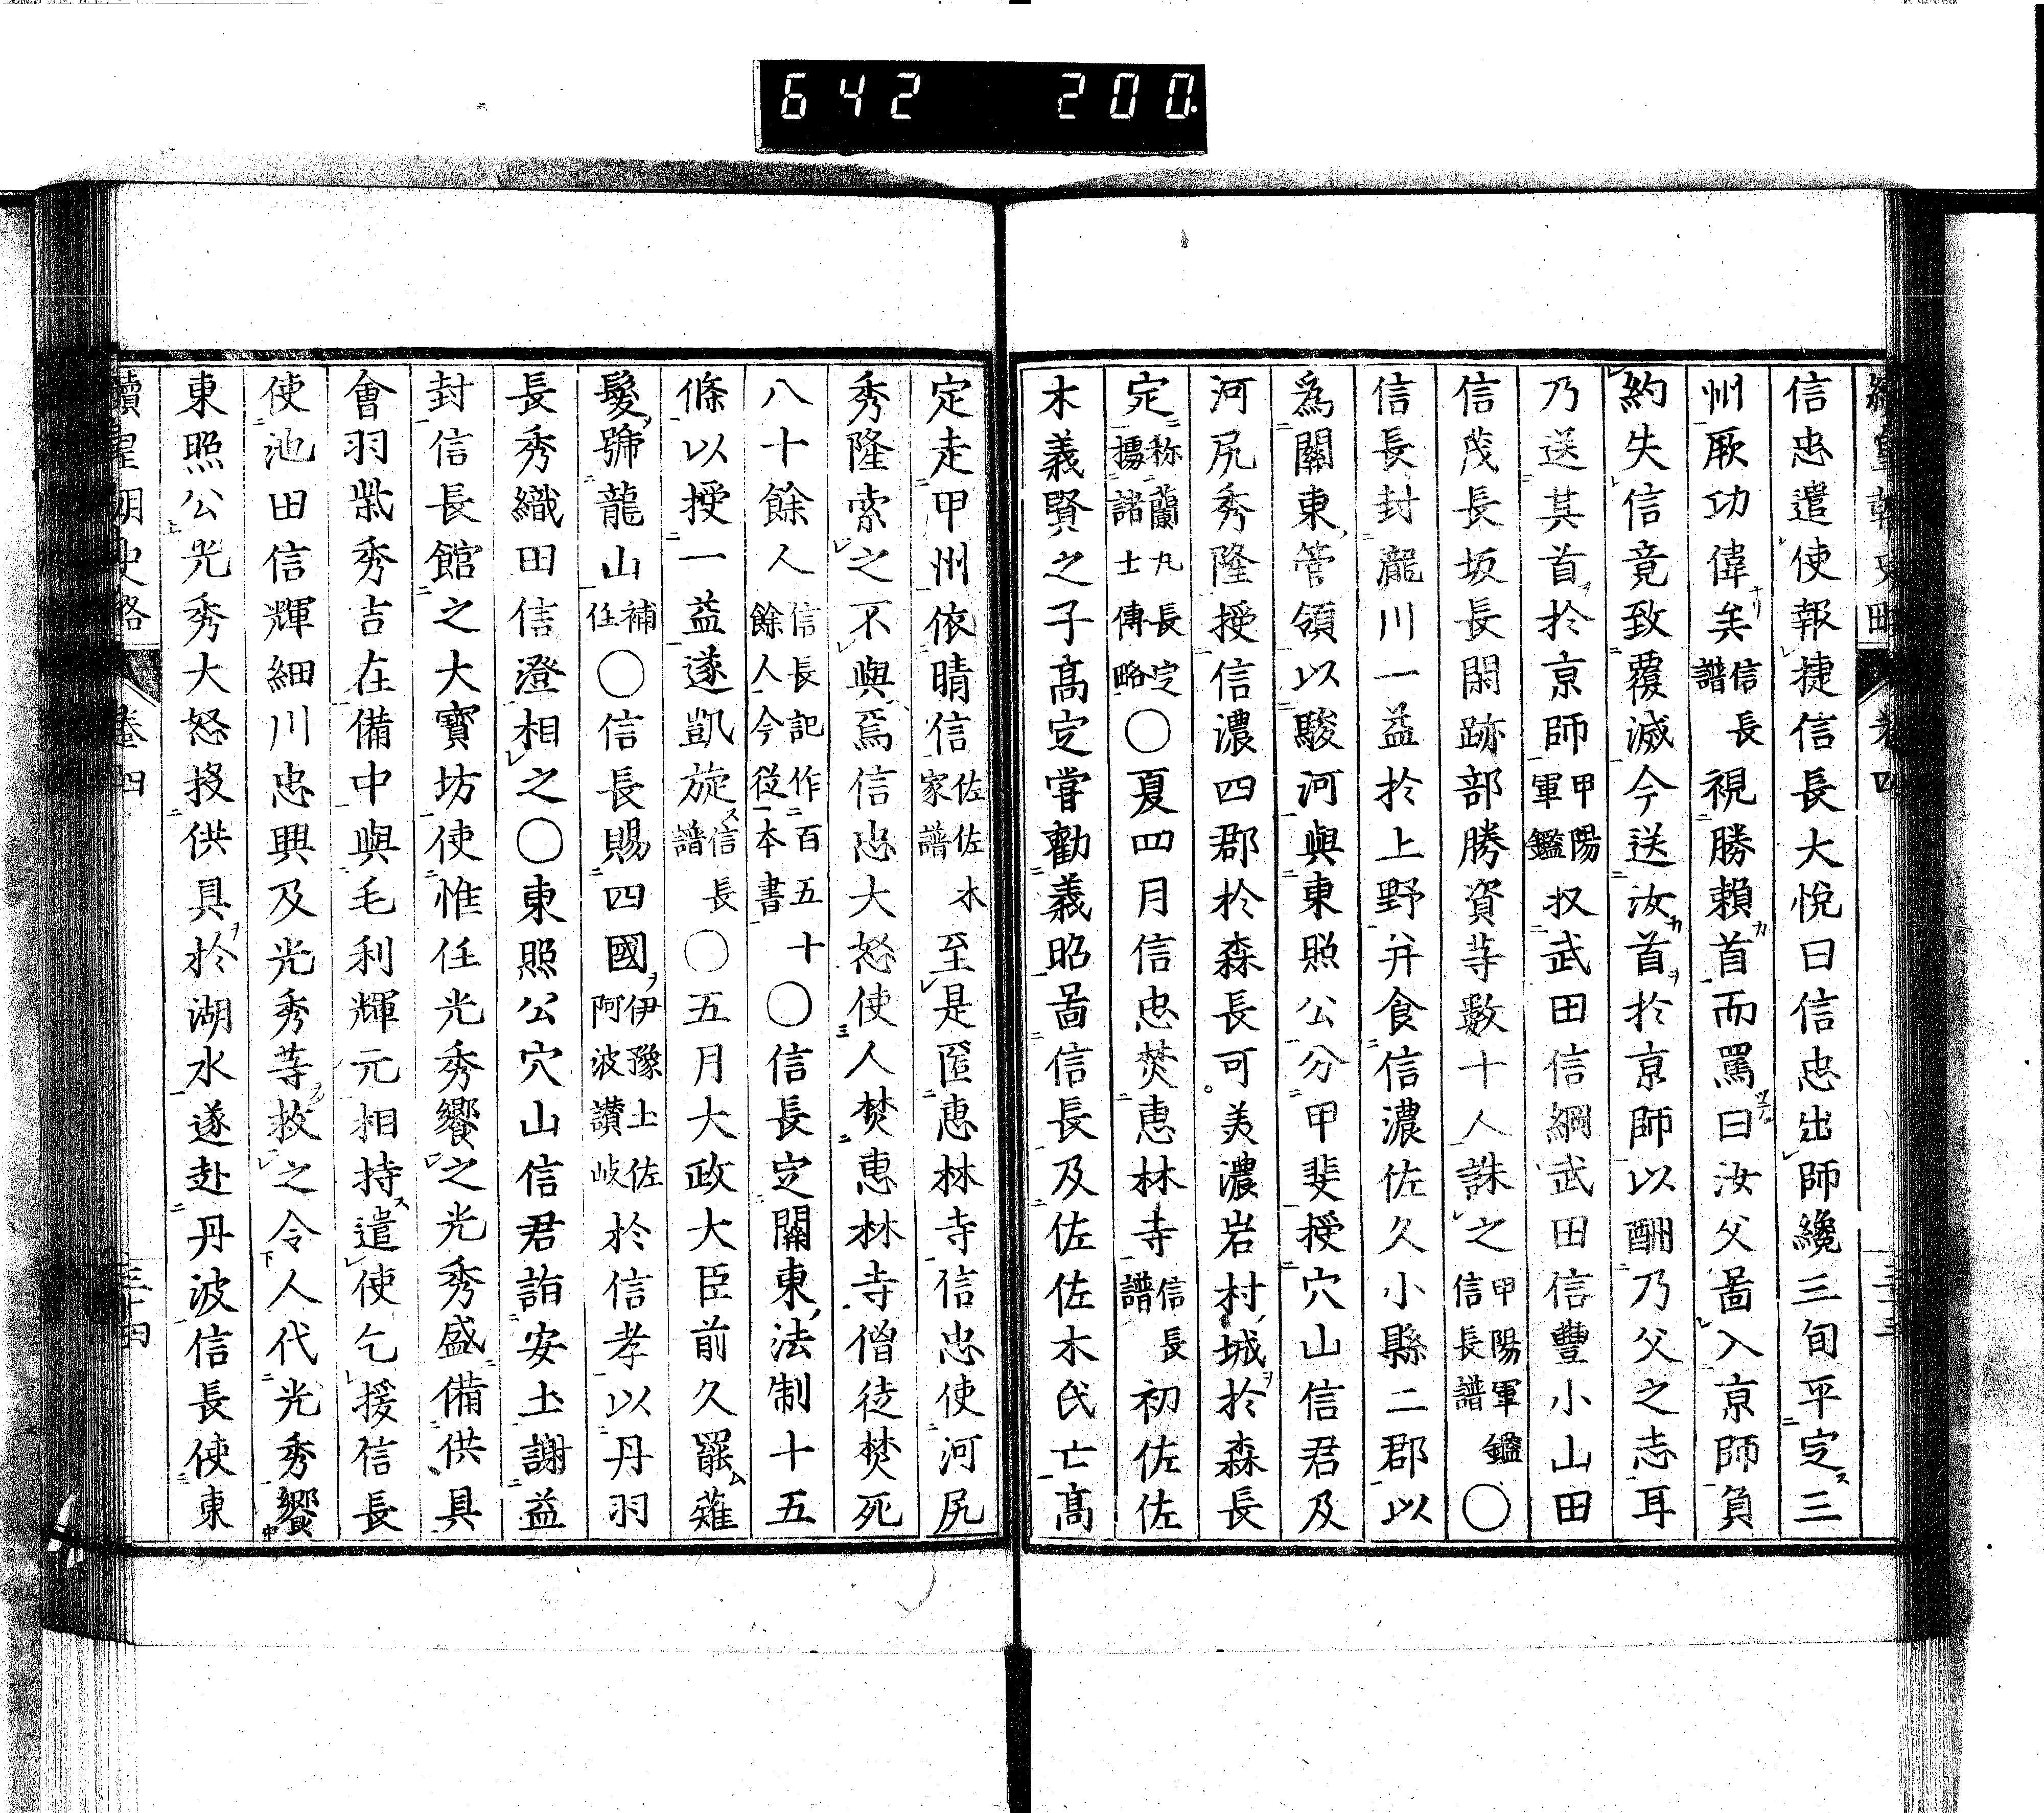 642 200.
信忠遣使報捷信長大悅曰信忠出師纔三旬平定三
州厥功偉矣信長譜視勝頼首而罵曰汝父啚入京師負
約失信竟致覆滅今送汝首於京師以酬乃父之志耳
乃送其首於京師甲陽軍鑑収武田信綱武田信豐小山田
信茂長坂長閑跡部勝資等數十人誅之甲陽軍鑑信長譜〇
信長封瀧川一益於上野并食信濃佐久小縣二郡以
爲關東管領以駿河與東照公分甲斐授穴山信君及
河尻秀隆授信濃四郡於森長可美濃岩村城於森長
定称蘭丸長定據諸士傳略〇夏四月信忠焚惠林寺信長譜初佐佐
木義賢之子高定嘗勸義昭啚信長及佐佐木氏亡高
定走甲州依晴信佐佐木家譜至是匿惠林寺信忠使河尻
秀隆索之不與焉信忠大怒使人焚惠林寺僧徒焚死
八十餘人信長記作百五十餘人今從一本書〇信長定關東法制十五
條以授一益遂凱旋信長譜〇五月大政大臣前久罷薙
髮號龍山補任〇信長賜四國伊豫土佐阿波讃岐於信孝以丹羽
長秀織田信澄相之〇東照公穴山信君詣安土謝益
封信長館之大寳坊使惟任光秀饗之光秀盛備供具
會羽柴秀吉在備中與毛利輝元相持遣使乞援信長
使池田信輝細川忠興及光秀等救之令人代光秀饗
東照公光秀大怒投供具於湖水遂赴丹波信長使東
卷四